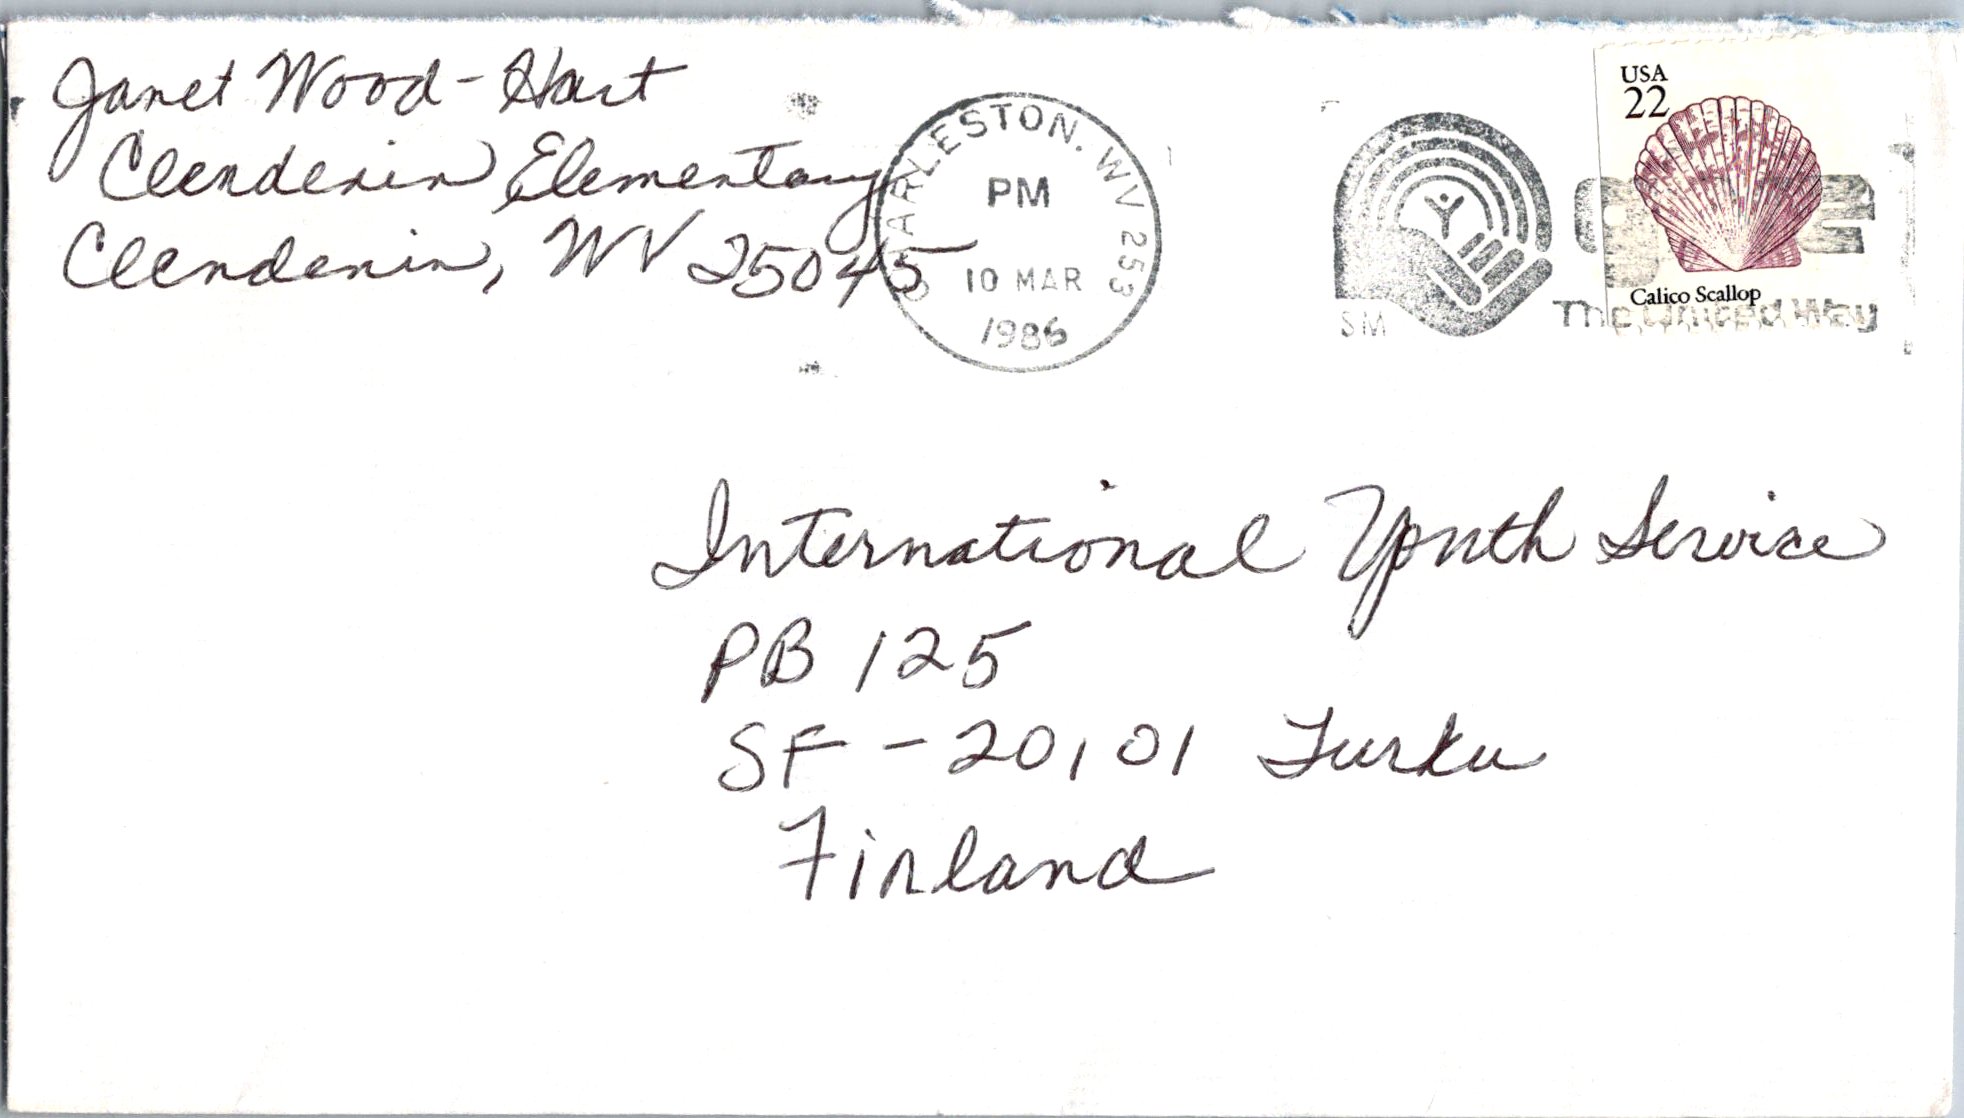 Janet Wood-Hart
Clendenin Elementary
Clendenin, WV 25045
CHARLESTON, WV 253
PM
10 MAR
1986
SM
The United Way
USA
22
Calico Scallop
International Youth Service
PB 125
SF - 20101 Turku
Finland